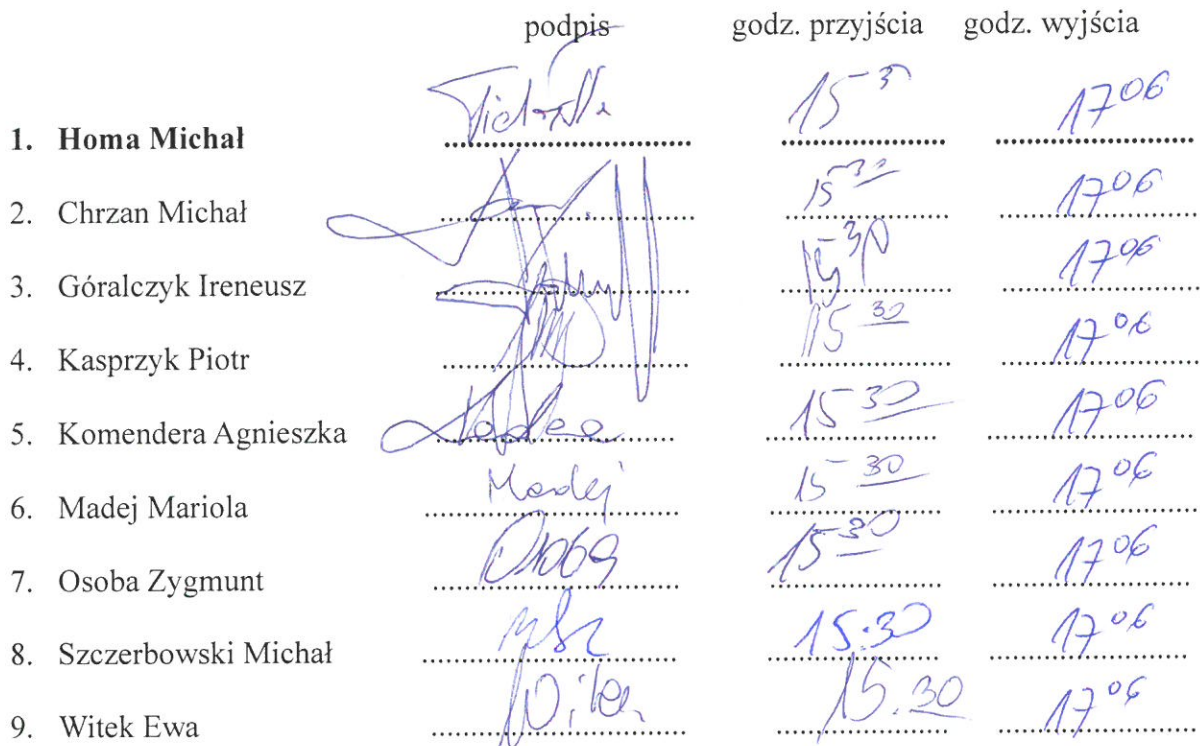 podpis godz. przyjścia godz. wyjścia
1. Homa Michał 15 3 17 06
2. Chrzan Michał 15 30 17 06
3. Góralczyk Ireneusz 15 30 17 06
4. Kasprzyk Piotr 15 30 17 06
5. Komendera Agnieszka 15 30 17 06
6. Madej Mariola Madej 15 30 17 06
7. Osoba Zygmunt Osoba 15 30 17 06
8. Szczerbowski Michał 15.30 17 06
9. Witek Ewa Witek 15.30 17 06